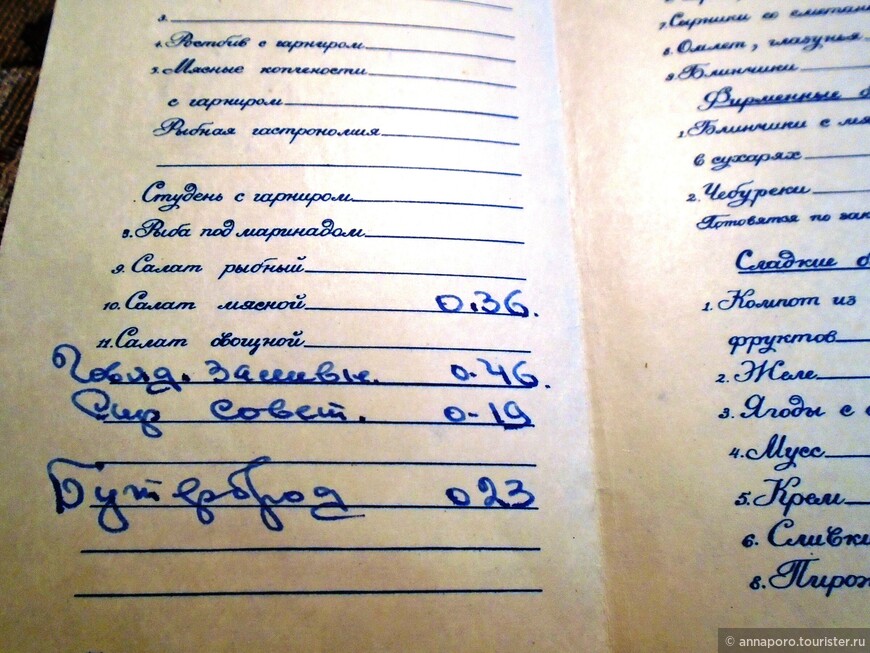 3.
4. Ростбиф с гарниром
5. Мясные копчености
с гарниром
Рыбная гастрономия
Студень с гарниром
8. Рыба под маринадом
9. Салат рыбный
10. Салат мясной 0.36.
11. Салат овощной
Говяд. заливн. 0-46.
Сыр совет. 0-19
Бутерброд 023
7. Сырники со сметан
8. Омлет, глазунья
9. Блинчики
Фирменные б
1. Блинчики с мя
в сухарях
2. Чебуреки
Готовятся по зак
Сладкие б
1. Компот из
фруктов
2. Желе
3. Ягоды с
4. Мусс
5. Крем
6. Сливки
8. Пирож
© annaporo.tourister.ru